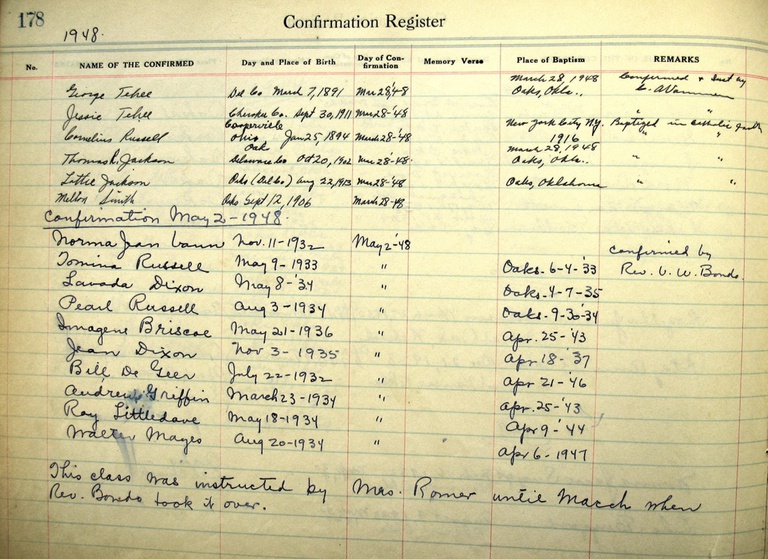 178
Confirmation Register
1948.
No. NAME OF THE CONFIRMED Day and Place of Birth Day of Con-firmation Memory Verse Place of Baptism REMARKS
George Tehee Del Co March 7, 1891 Mar 28, '48 March 28, 1948 Oaks, Okla.. Confirmed & Inst by
Jessie Tehee Cherokee Co. Sept 30, 1911 Mar 28-'48 " "
Cornelius Russell Ohio Jan 25, 1894 March 28-'48 New York City N.Y. 1916 Baptized in Catholic " "
Thomas R. Jackson Oak Delaware Co Oct 20, 1902 Mar 28-48. March 28, 1948 Oaks, Okla.. " "
Lottie Jackson Oaks (Del Co) Aug 22, 1913 Mar 28-'48 Oaks, Oklahoma " "
Melton Smith Oaks Sept 12, 1906 March 28-48
Confirmation May 2-1948.
Norma Jean Vann Nov. 11-1932 May 2-'48 Confirmed by
Tomina Russell May 9-1933 " Oaks-6-4-'33 Rev. V. W. Bondo.
Lavada Dixon May 8-'34 " Oaks-4-7-35
Pearl Russell Aug 3-1934 " Oaks-9-30-34
Imagene Briscoe May 21-1936 " Apr. 25-'43
Jean Dixon Nov 3-1935 " Apr 18-'37
Bill De Geer July 22-1932 " Apr 21-'46
Andrew Griffin March 23-1934 " Apr. 25-'43
Ray Littledave May 18-1934 " Apr 9-'44
Walter Mayes Aug 20-1934 " Apr 6-1947
This class was instructed by Mrs. Romer until March when
Rev. Bondo took it over.